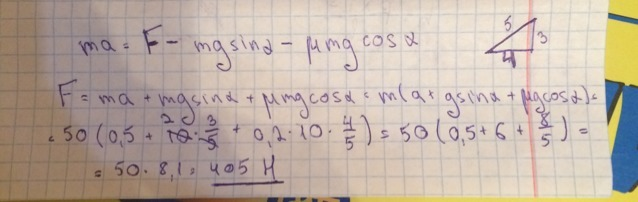 ma = F - mg sinα - μmg cosα
5
3
4
F = ma + mg sinα + μmg cosα = m(a + g sinα + μg cosα) =
= 50 (0,5 + 10 2 · 3/5 + 0,2 · 10 · 4/5) = 50 (0,5 + 6 + 8/5) =
= 50 · 8,1 = 405 Н